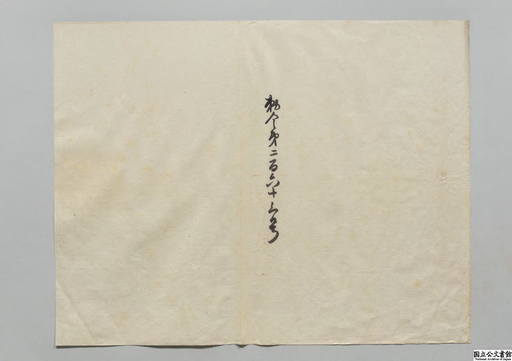 勅令第二百六十三号
国立公文書館
National Archives of Japan